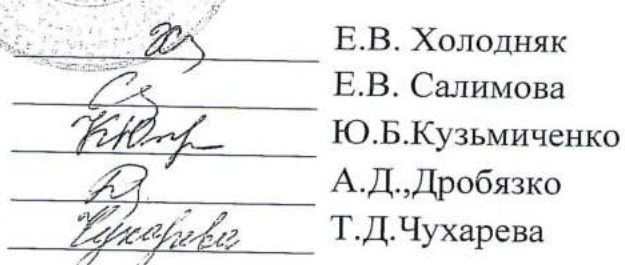 Е.В. Холодняк
Е.В. Салимова
Ю.Б.Кузьмиченко
А.Д.,Дробязко
Чухарева Т.Д.Чухарева